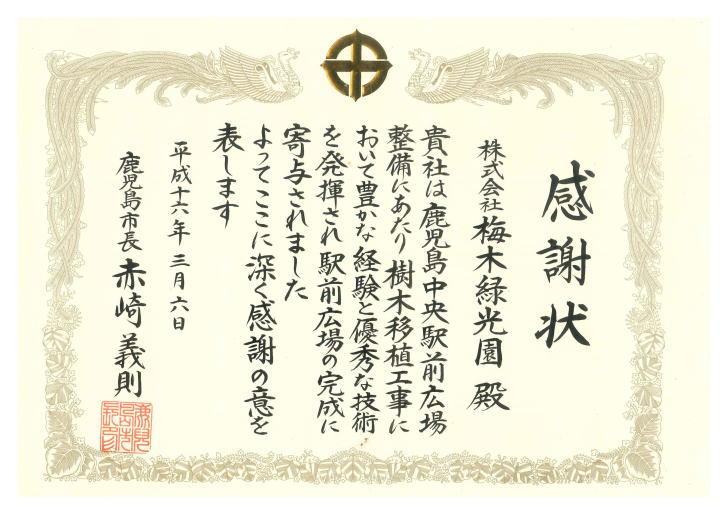 感謝状
株式会社 梅木緑光園 殿
貴社は鹿児島中央駅前広場
整備にあたり樹木移植工事に
おいて豊かな経験と優秀な技術
を発揮され駅前広場の完成に
寄与されました
よってここに深く感謝の意を
表します
平成十六年三月六日
鹿児島市長 赤崎義則